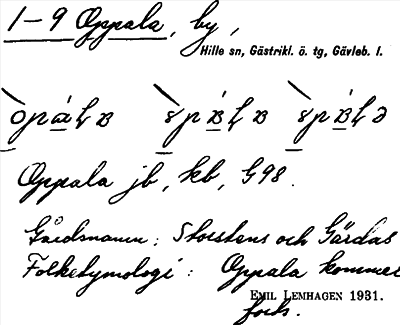 1–9 Oppala, by,
Hille sn, Gästrikl. ö. tg, Gävleb. l.
Oppala jb, kb, G98.
Gårdsnamn: Storstens och Gärdas
Folketymologi: Oppala kommer
EMIL LEMHAGEN 1931.
forts.